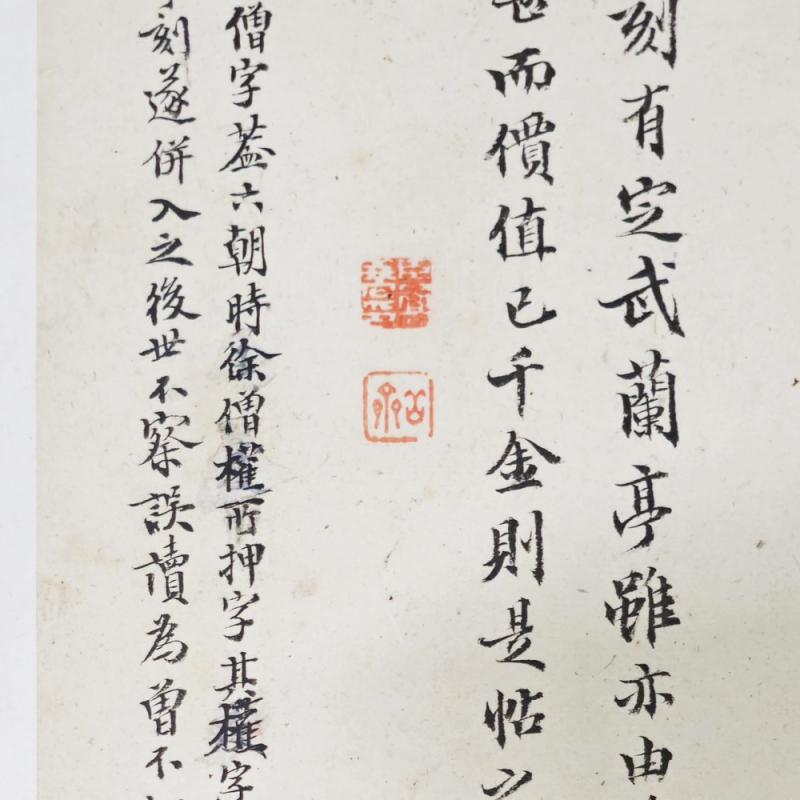 刻有定武蘭亭雖亦由
而價值已千金則是帖
僧字蓋六朝時徐僧權所押字其權字
刻遂併入之後世不察誤讀為曾不